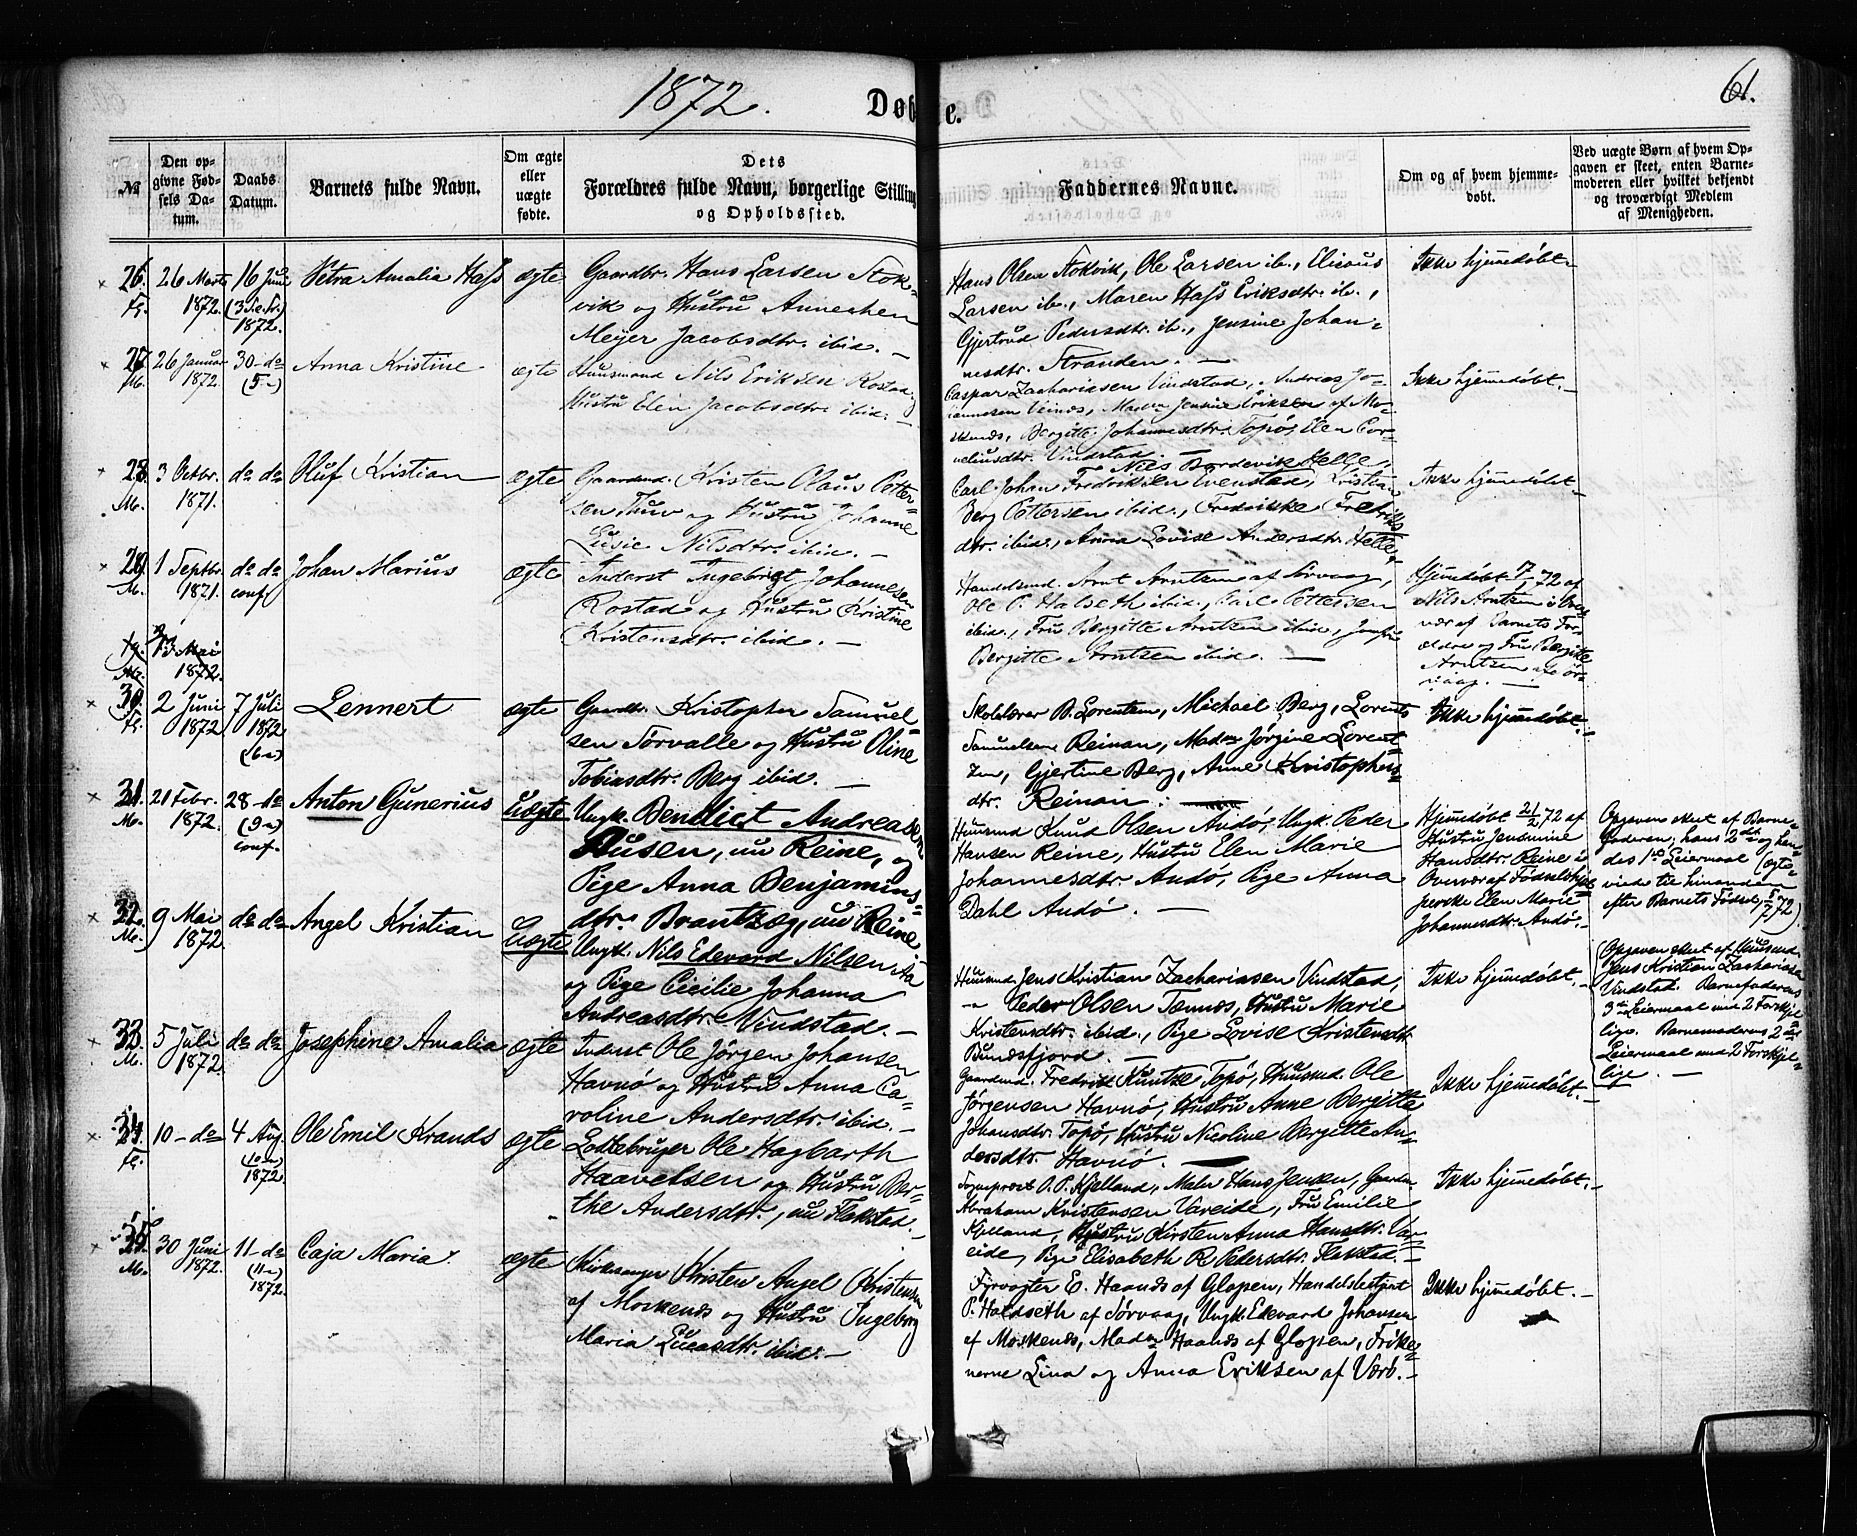 1872. Døbte. 61.
№
Den op-
givne Fød-
sels Da-
tum.
Daabs
Datum.
Barnets fulde Navn.
Om ægte
eller
uægte
fødte.
Dets
Forældres fulde Navn, borgerlige Stilling
og Opholdssted.
Faddernes Navne.
Om og af hvem hjemme-
døbt.
Ved uægte Børn af hvem Op-
gaven er skeet, enten Barne-
moderen eller hvilket bekjendt
og troværdigt Medlem
af Menigheden.
26.
Fl.
26 Marts
1872.
16 Juni
(3 S. e. Tr.)
1872.
Petra Amalia Hass
ægte
Gaardbr. Hans Larsen Stok-
vik og Hustru Annechen
Meyer Jacobsdtr. ibid. —
Hans Olsen Stokvik, Ole Larsen ib., Elicæus
Larsen ib., Maren Hass Eriksdtr. ib.,
Gjertrud Pedersdtr. ib., Jensine Johan-
nesdtr. Stranden. —
Ikke hjemmedøbt.
27.
M.
26 Januar
1872.
30 - do
(5 -)
Anna Kristine
ægte
Huusmand Nils Eriksen Rostad og
Hustru Elen Jacobsdtr. ibid. —
Caspar Zachariasen Vindstad, Andreas Jo-
hannesen Veines, Madm Jensine Eriksen af Mo-
skenæs, Bergitte Johannesdtr. Topø, Elen Cor-
neliusdtr. Vindstad. —
Ikke hjemmedøbt. —
28.
M.
3 Octbr.
1871.
do do
Oluf Kristian
ægte
Gaardmd. Kristen Olaus Petter-
sen Thuv og Hustru Johanne
Lusie Nilsdtr. ibid. —
Nils Bordevik Helle,
Carl Johan Fredriksen Evenstad, Kristian
Berg Pettersen ibid., Fredrikke Fredriks-
dtr. ibid., Anna Lovise Andersdtr. Helle.
Ikke hjemmedøbt.
29.
M.
1 Septbr.
1871.
do do
conf.
Johan Marius
ægte
Inderst Ingebrigt Johannesen
Rostad og Hustru Kristine
Kristensdtr. ibid. —
Handlsmd. Arnt Arntzen af Sørvaag,
Ole P. Halseth ibid., Carl Pettersen
ibid., Fru Bergitte Arntzen ibid.,
Bergitte Arntzen ibid. —
Hjemmedøbt 72 af
Nils Arntzen i Over-
vær af Barnets For-
ældre og Fru Bergitte
Arntzen af Sør-
vaag. —
13 Mai
1872.
30.
Fl.
2 Juni
1872
7 Juli
1872
(6 -)
Lennert
ægte
Gaardbr. Kristopher Samuel-
sen Sørvalle og Hustru Oline
Tobiasdtr. Berg ibid. —
Skolelærer B. Lorentzen, Michael Berg, Lorents
Samuelsen Reinan, Madm Jørgine Lorent-
zen, Gjertine Berg, Anne Kristophers-
dtr. Reinan. —
Ikke hjemmedøbt. —
31.
M.
21 Febr.
1872.
28 - do
(9 -)
conf.
Anton Gunerius
Uægte
Ungk. Benedict Andreasen
Busen, nu Reine, og
Pige Anna Benjamins-
dtr. Brantzæg, nu Reine
Huusmd Knud Olsen Andø, Ungk. Peder
Hansen Reine, Hustru Elen Marie
Johannesdtr. Andø, Pige Anna
Dahl Andø. —
Hjemmedøbt 21/2 72 af
Hustru Jensmine
Hansdtr. Reine i
Overvær af Fødselshjel-
perske Elen Marie
Johannesdtr. Andø. —
Opgaven skeet af Barne-
faderen; hans 2det og hen-
des 1ste Leiermaal (ægte-
viede til hinanden
efter Barnets Fødsel, 5/7 72).
32.
M.
9 Mai
1872
do do
Angel Kristian
Uægte
Ungk. Nils Edevard Nilsen
og Pige Cicilie Johanna
Andreasdtr. Vindstad. —
Huusmd Jens Kristian Zachariasen Vindstad,
— Peder Olsen Tennes, Hustru Marie
Kristensdtr. ibid., Pige Lovise Kristensdtr
Bunæsfjord. —
Ikke hjemmedøbt. —
Opgaven skeet af Huusmd.
Jens Kristian Zachariasen
Vindstad. Barnefaderens
3die Leiermaal med 2 Forskjel-
lige. Barnemoderens 2det
Leiermaal med 2 Forskjel-
lige. —
33.
M.
5 Juli
1872
do do
Josephine Amalia
ægte
Inderst Ole Jörgen Johansen
Havnø og Hustru Anna Ca-
roline Andersdtr. ibid. —
Gaardmd. Fredrik Kuntze Topø, Huusmd. Ole
Jørgensen Havnø, Hustru Anne Bergitte
Johansdtr. Topø, Hustru Nicoline Bergitte An-
dersdtr. Havnø. —
Ikke hjemmedøbt. —
34.
Fl.
10 - do
4 Aug.
(10 -)
1872.
Ole Emil Krands
ægte
Lottebruger Ole Hagbarth
Haavelsen og Hustru Ber-
the Andersdtr., nu Flakstad. —
Sogneprest O. P. Kjelland, Maler Hans Jensen, Gaardm.
Abraham Kristensen Vareide, Fru Emilie
Kjelland, Hustru Kirsten Anna Hansdtr. Var-
eide, Pige Elisabeth R. Pedersdtr. Flakstad. —
Ikke hjemmedøbt. —
35.
M.
30 Juni
1872.
11 - do
(11 -)
1872.
Caja Maria.
ægte
Kirkesanger Kristen Angel Christensen
af Moskenæs og Hustru Ingeborg
Maria Lucasdtr. ibid. —
Fyrvogter E. Haands af Glapen, Handelsbestyrer
P. Haldseth af Sørvaag, Ungk. Edevard Johansen
af Moskenæs, Madm Haands af Glopen, Frøke-
nerne Lina og Anna Eriksen af Værö. —
Ikke hjemmedøbt. —